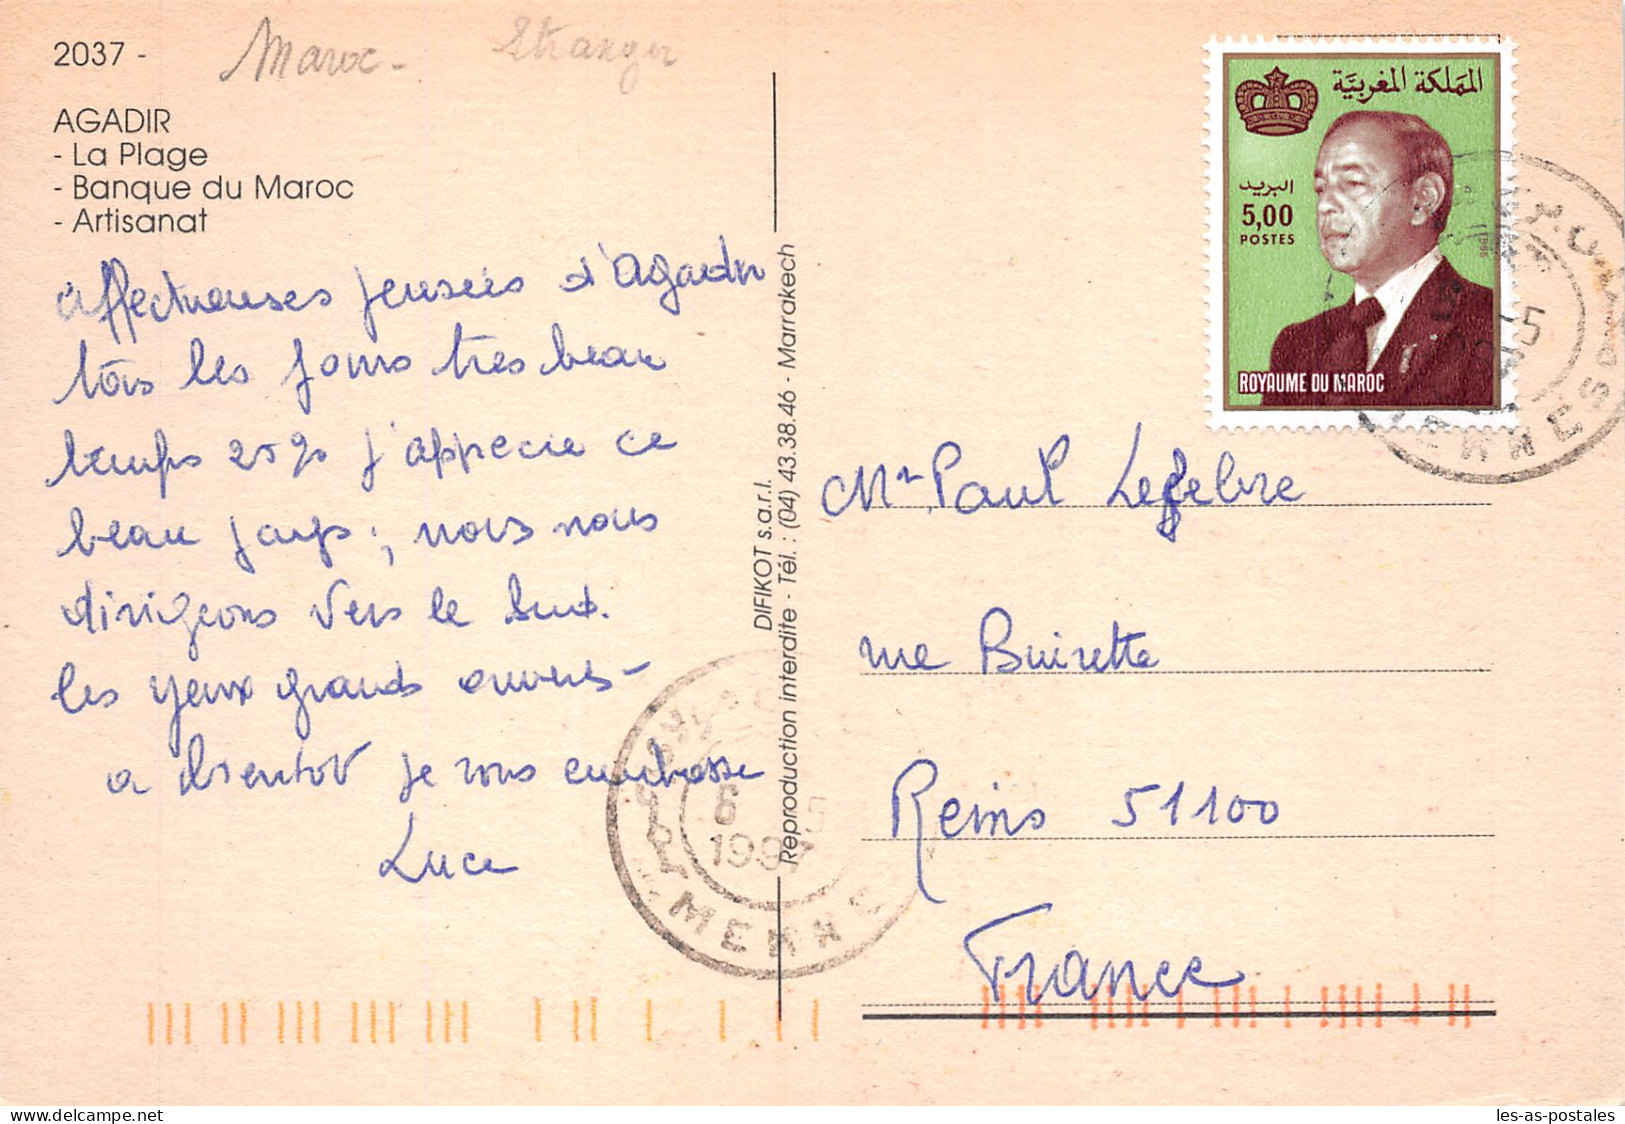 2037 -
Maroc - Etranger
AGADIR
- La Plage
- Banque du Maroc
- Artisanat
Affectueuses pensées d'Agadir
tous les jours très beau
temps 25° j'apprecie ce
beau pays ; nous nous
dirigeons vers le Sud.
les yeux grands ouverts -
a bientot je vous embrasse
Luce
DIFIKOT s.a.r.l.
Reproduction interdite - Tél. : (04) 43.38.46 - Marrakech
المملكة المغربية
البريد
5,00
POSTES
1986
ROYAUME DU MAROC
-5
6 5
1997
Mr Paul Lefebvre
rue Buirette
Reims 51100
France
les-as-postales